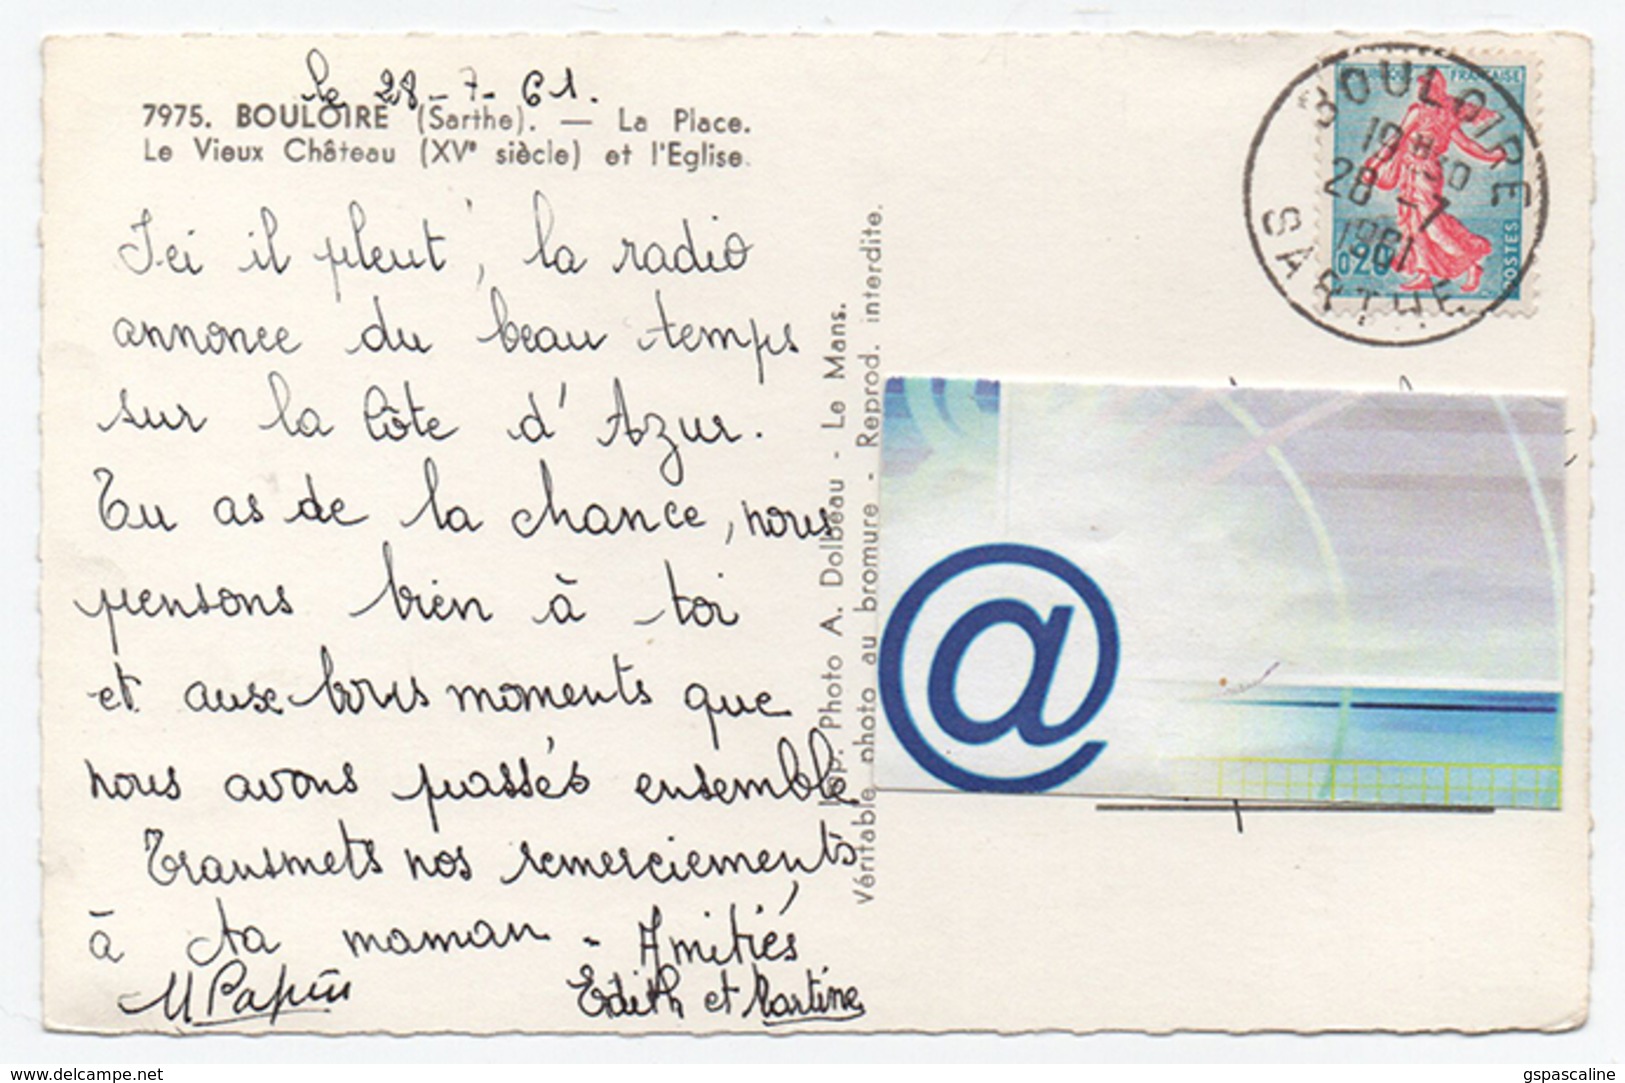 le 28-7-61.
7975. BOULOIRE (Sarthe). — La Place.
Le Vieux Château (XVe siècle) et l'Eglise.
Ici il pleut, la radio
annonce du beau temps
sur la Côte d'Azur.
Tu as de la chance, nous
pensons bien à toi
et aux bons moments que
nous avons passés ensemble.
Transmets nos remerciements
à ta maman - Amitiés
M Papin Edith et Martine
Photo A. Dolbeau - Le Mans.
Véritable photo au bromure - Reprod. interdite.
BOULOIRE
19H30
28-7
1961
SARTHE
FRANÇAISE
0,20
POSTES
@
www.delcampe.net
gspascaline